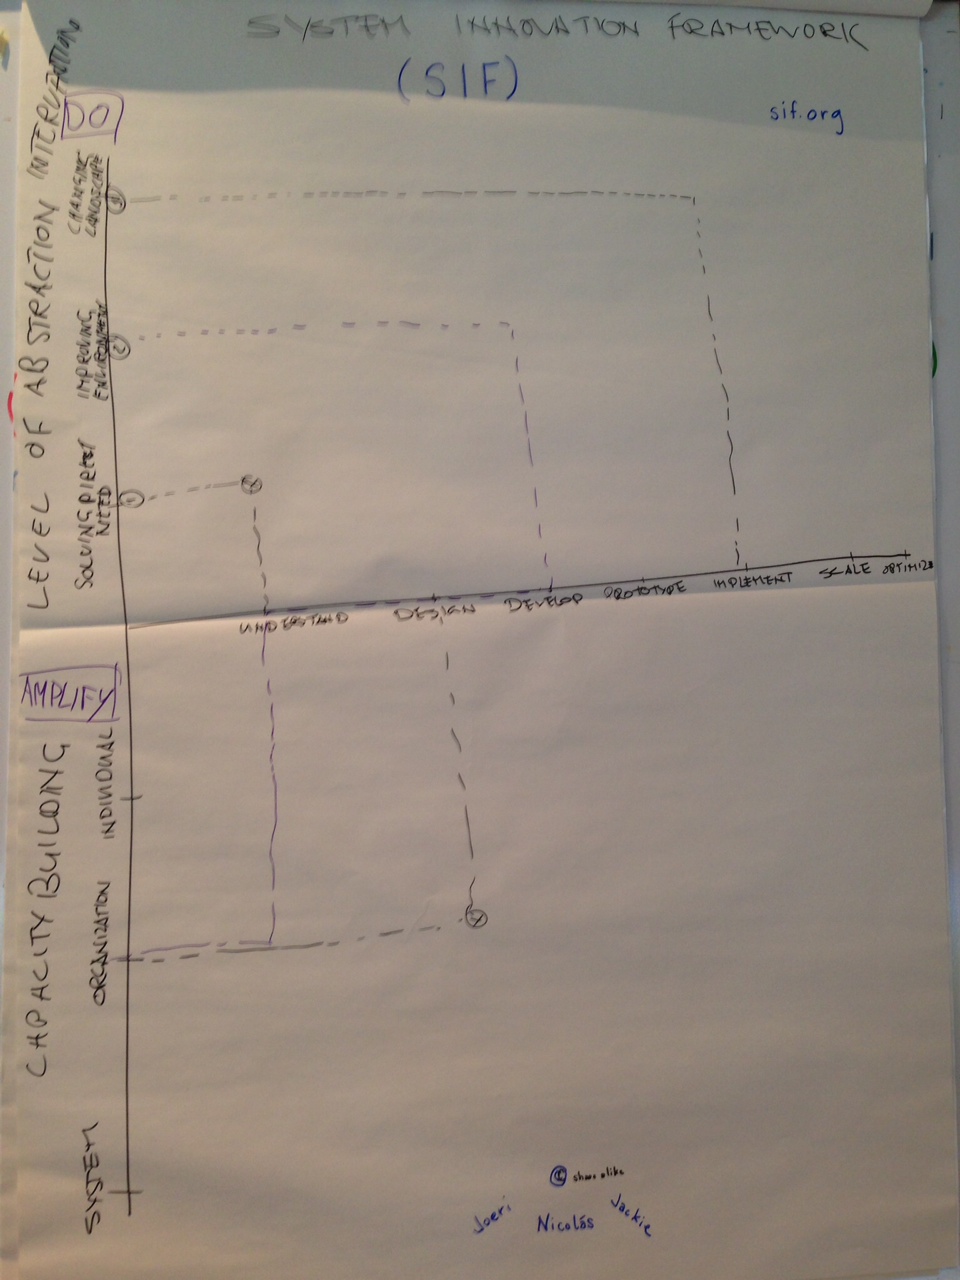 SYSTEM INNOVATION FRAMEWORK
(SIF)
sif.org
LEVEL OF ABSTRACTION INTERVENTION
DO
CHANGING
LANDSCAPE
3
IMPROVING
ENVIRONMENT
2
SOLVING DIRECT
NEED
1
UNDERSTAND
DESIGN
DEVELOP
PROTOTYPE
IMPLEMENT
SCALE
OPTIMIZE
AMPLIFY
CAPACITY BUILDING
INDIVIDUAL
ORGANIZATION
SYSTEM
share alike
Joeri
Nicolás
Jackie